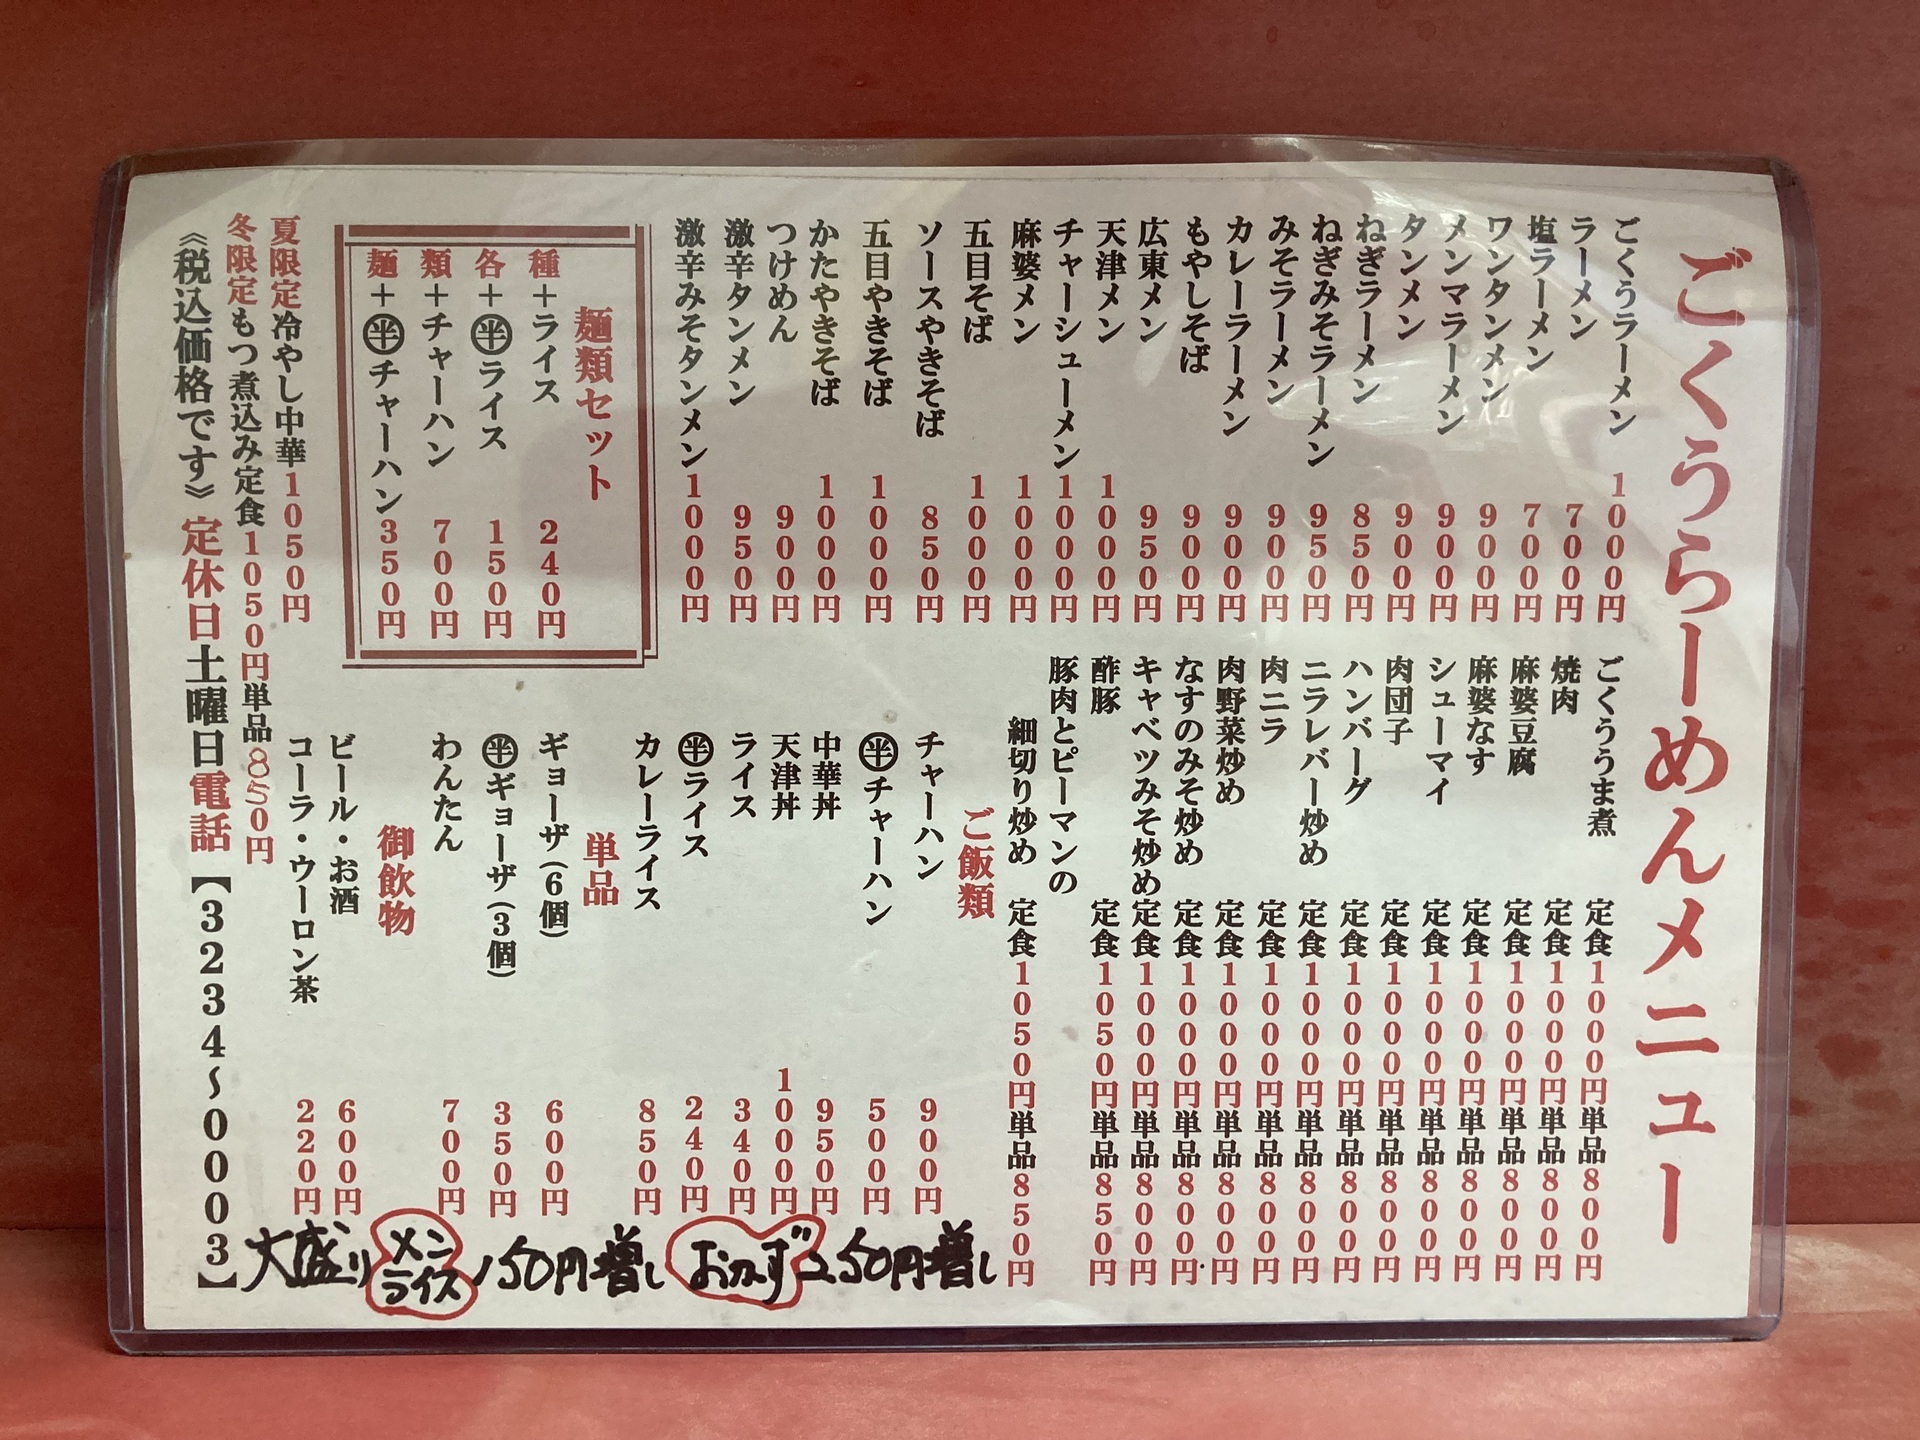 ごくうらーめんメニュー
ごくうラーメン 1000円
ラーメン 700円
塩ラーメン 700円
ワンタンメン 900円
メンマラーメン 900円
タンメン 900円
ねぎラーメン 850円
ねぎみそラーメン 950円
みそラーメン 900円
カレーラーメン 900円
もやしそば 900円
広東メン 950円
天津メン 1000円
チャーシューメン 1000円
麻婆メン 1000円
五目そば 1000円
ソースやきそば 850円
五目やきそば 1000円
かたやきそば 1000円
つけめん 900円
激辛タンメン 950円
激辛みそタンメン 1000円
麺類セット
種+ライス 240円
各+㊥ライス 150円
類+チャーハン 700円
麺+半チャーハン 350円
夏限定冷やし中華1050円
冬限定もつ煮込み定食1050円単品850円
《税込価格です》定休日土曜日電話【3234~0003】
ごくううま煮 定食1000円単品800円
焼肉 定食1000円単品800円
麻婆豆腐 定食1000円単品800円
麻婆なす 定食1000円単品800円
シューマイ 定食1000円単品800円
肉団子 定食1000円単品800円
ハンバーグ 定食1000円単品800円
ニラレバー炒め 定食1000円単品800円
肉ニラ 定食1000円単品800円
肉野菜炒め 定食1000円単品800円
なすのみそ炒め 定食1000円単品800円
キャベツみそ炒め定食1000円単品800円
酢豚 定食1050円単品850円
豚肉とピーマンの
細切り炒め 定食1050円単品850円
ご飯類
チャーハン 900円
半チャーハン 500円
中華丼 950円
天津丼 1000円
ライス 340円
半ライス 240円
カレーライス 850円
単品
ギョーザ(6個) 600円
半ギョーザ(3個) 350円
わんたん 700円
御飲物
ビール・お酒 600円
コーラ・ウーロン茶 220円
大盛り メン ライス 150円増し おかず 250円増し